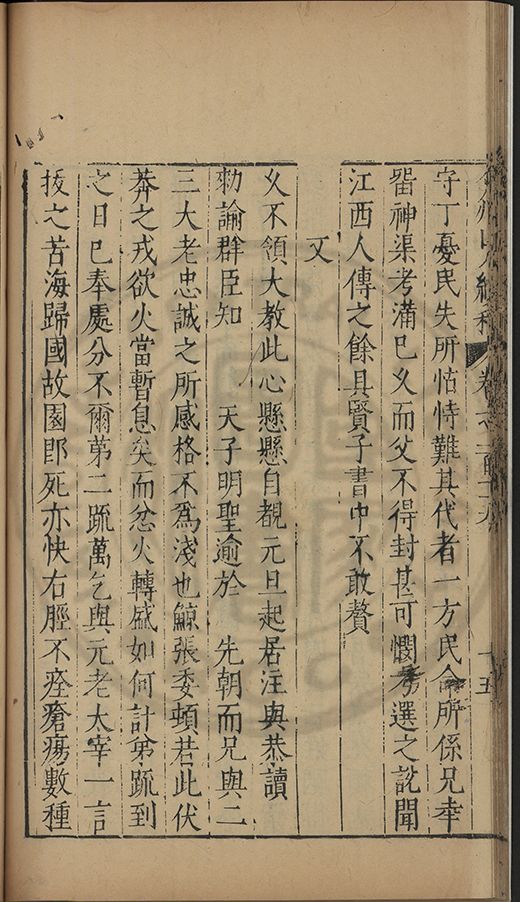 州山人續稿 卷之一百 十五
守丁憂民失所怙恃難其代者一方民命所係兄幸
畱神渠考滿已久而父不得封甚可憫考選之說聞
江西人傳之餘具賢子書中不敢贅
又
久不領大教此心懸懸自覩元旦起居注與恭讀
勑諭群臣知 天子明聖逾於 先朝而兄與二
三大老忠誠之所感格不為淺也鯨張委頓若此伏
莽之戎欲火當暫息矣而忿火轉盛如何計弟疏到
之日已奉處分不爾第二疏萬乞與元老太宰一言
拔之苦海歸國故園卽死亦快右脛不痊瘡瘍數種